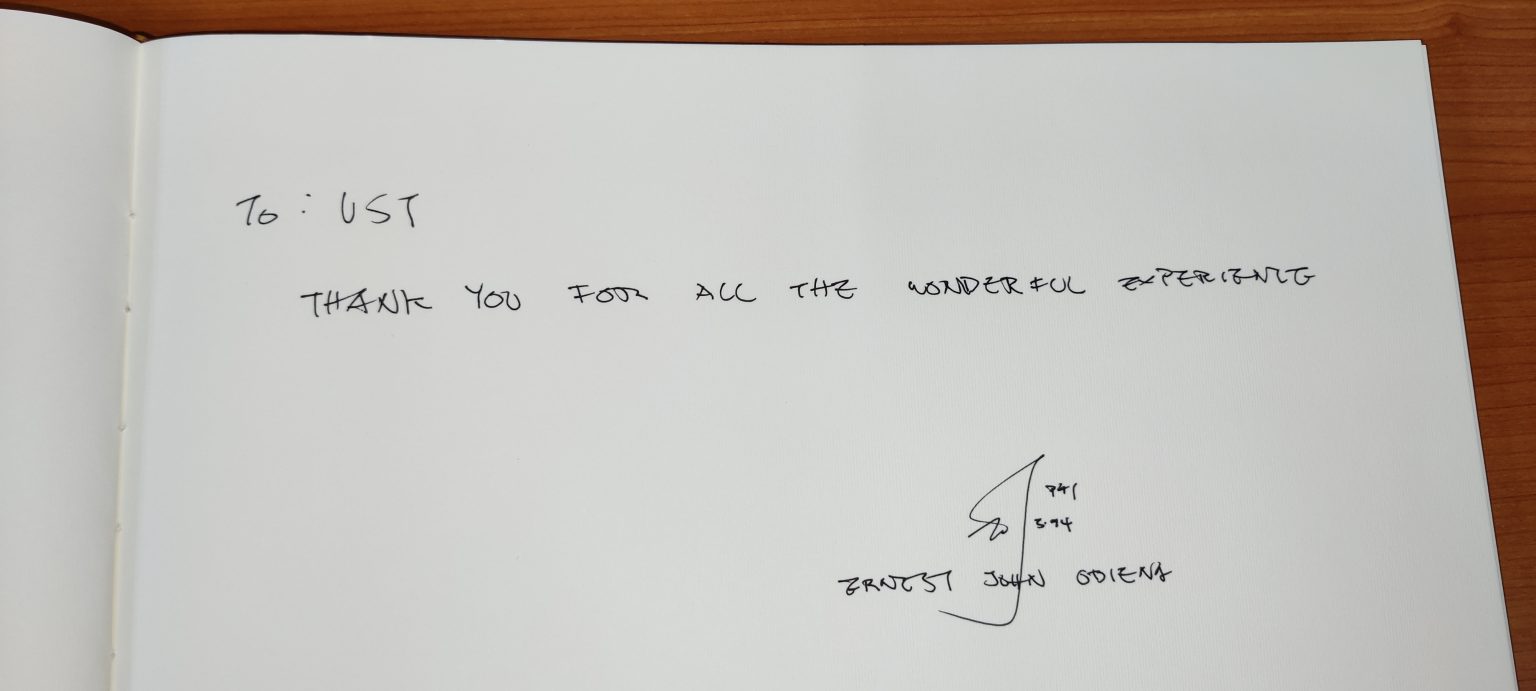 To : UST
THANK YOU FOR ALL THE WONDERFUL EXPERIENCE
5.94
ERNEST JOHN OBIENA